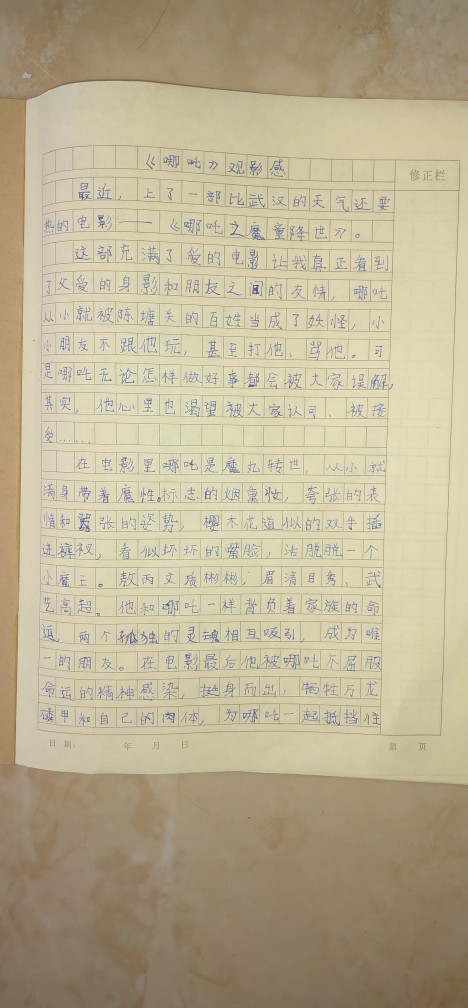 《哪吒》观影感
修正栏
最近，上了一部比武汉的天气还要
热的电影——《哪吒之魔童降世》。
这部充满了爱的电影让我真正看到
了父爱的身影和朋友之间的友情，哪吒
从小就被陈塘关的百姓当成了妖怪，小
小朋友不跟他玩，甚至打他、骂他。可
是哪吒无论怎样做好事都会被大家误解，
其实，他心里也渴望被大家认可、被接
受……
在电影里哪吒是魔丸转世，从小就
满身带着魔性。标志的烟熏妆，夸张的表
情和嚣张的姿势，樱木花道似的双手插
进裤衩，看似坏坏的嘴脸，活脱脱一个
小魔王。敖丙文质彬彬，眉清目秀、武
艺高超。他和哪吒一样背负着家族的命
运，两个孤独的灵魂相互吸引，成为唯
一的朋友。在电影最后他被哪吒不屈服
命运的精神感染，挺身而出，牺牲万龙
鳞甲和自己的肉体，为哪吒一起抵挡住
日期： 年 月 日 第 页